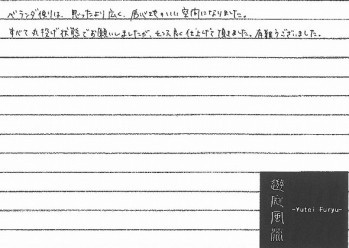 ベランダ使りは、思ったより広く、居心地がいい空間になりました。
すべて丸投げ状態でお願いしましたが、センス良く仕上げて頂きました。有難うございました。
遊庭風流
-Yutei Furyu-